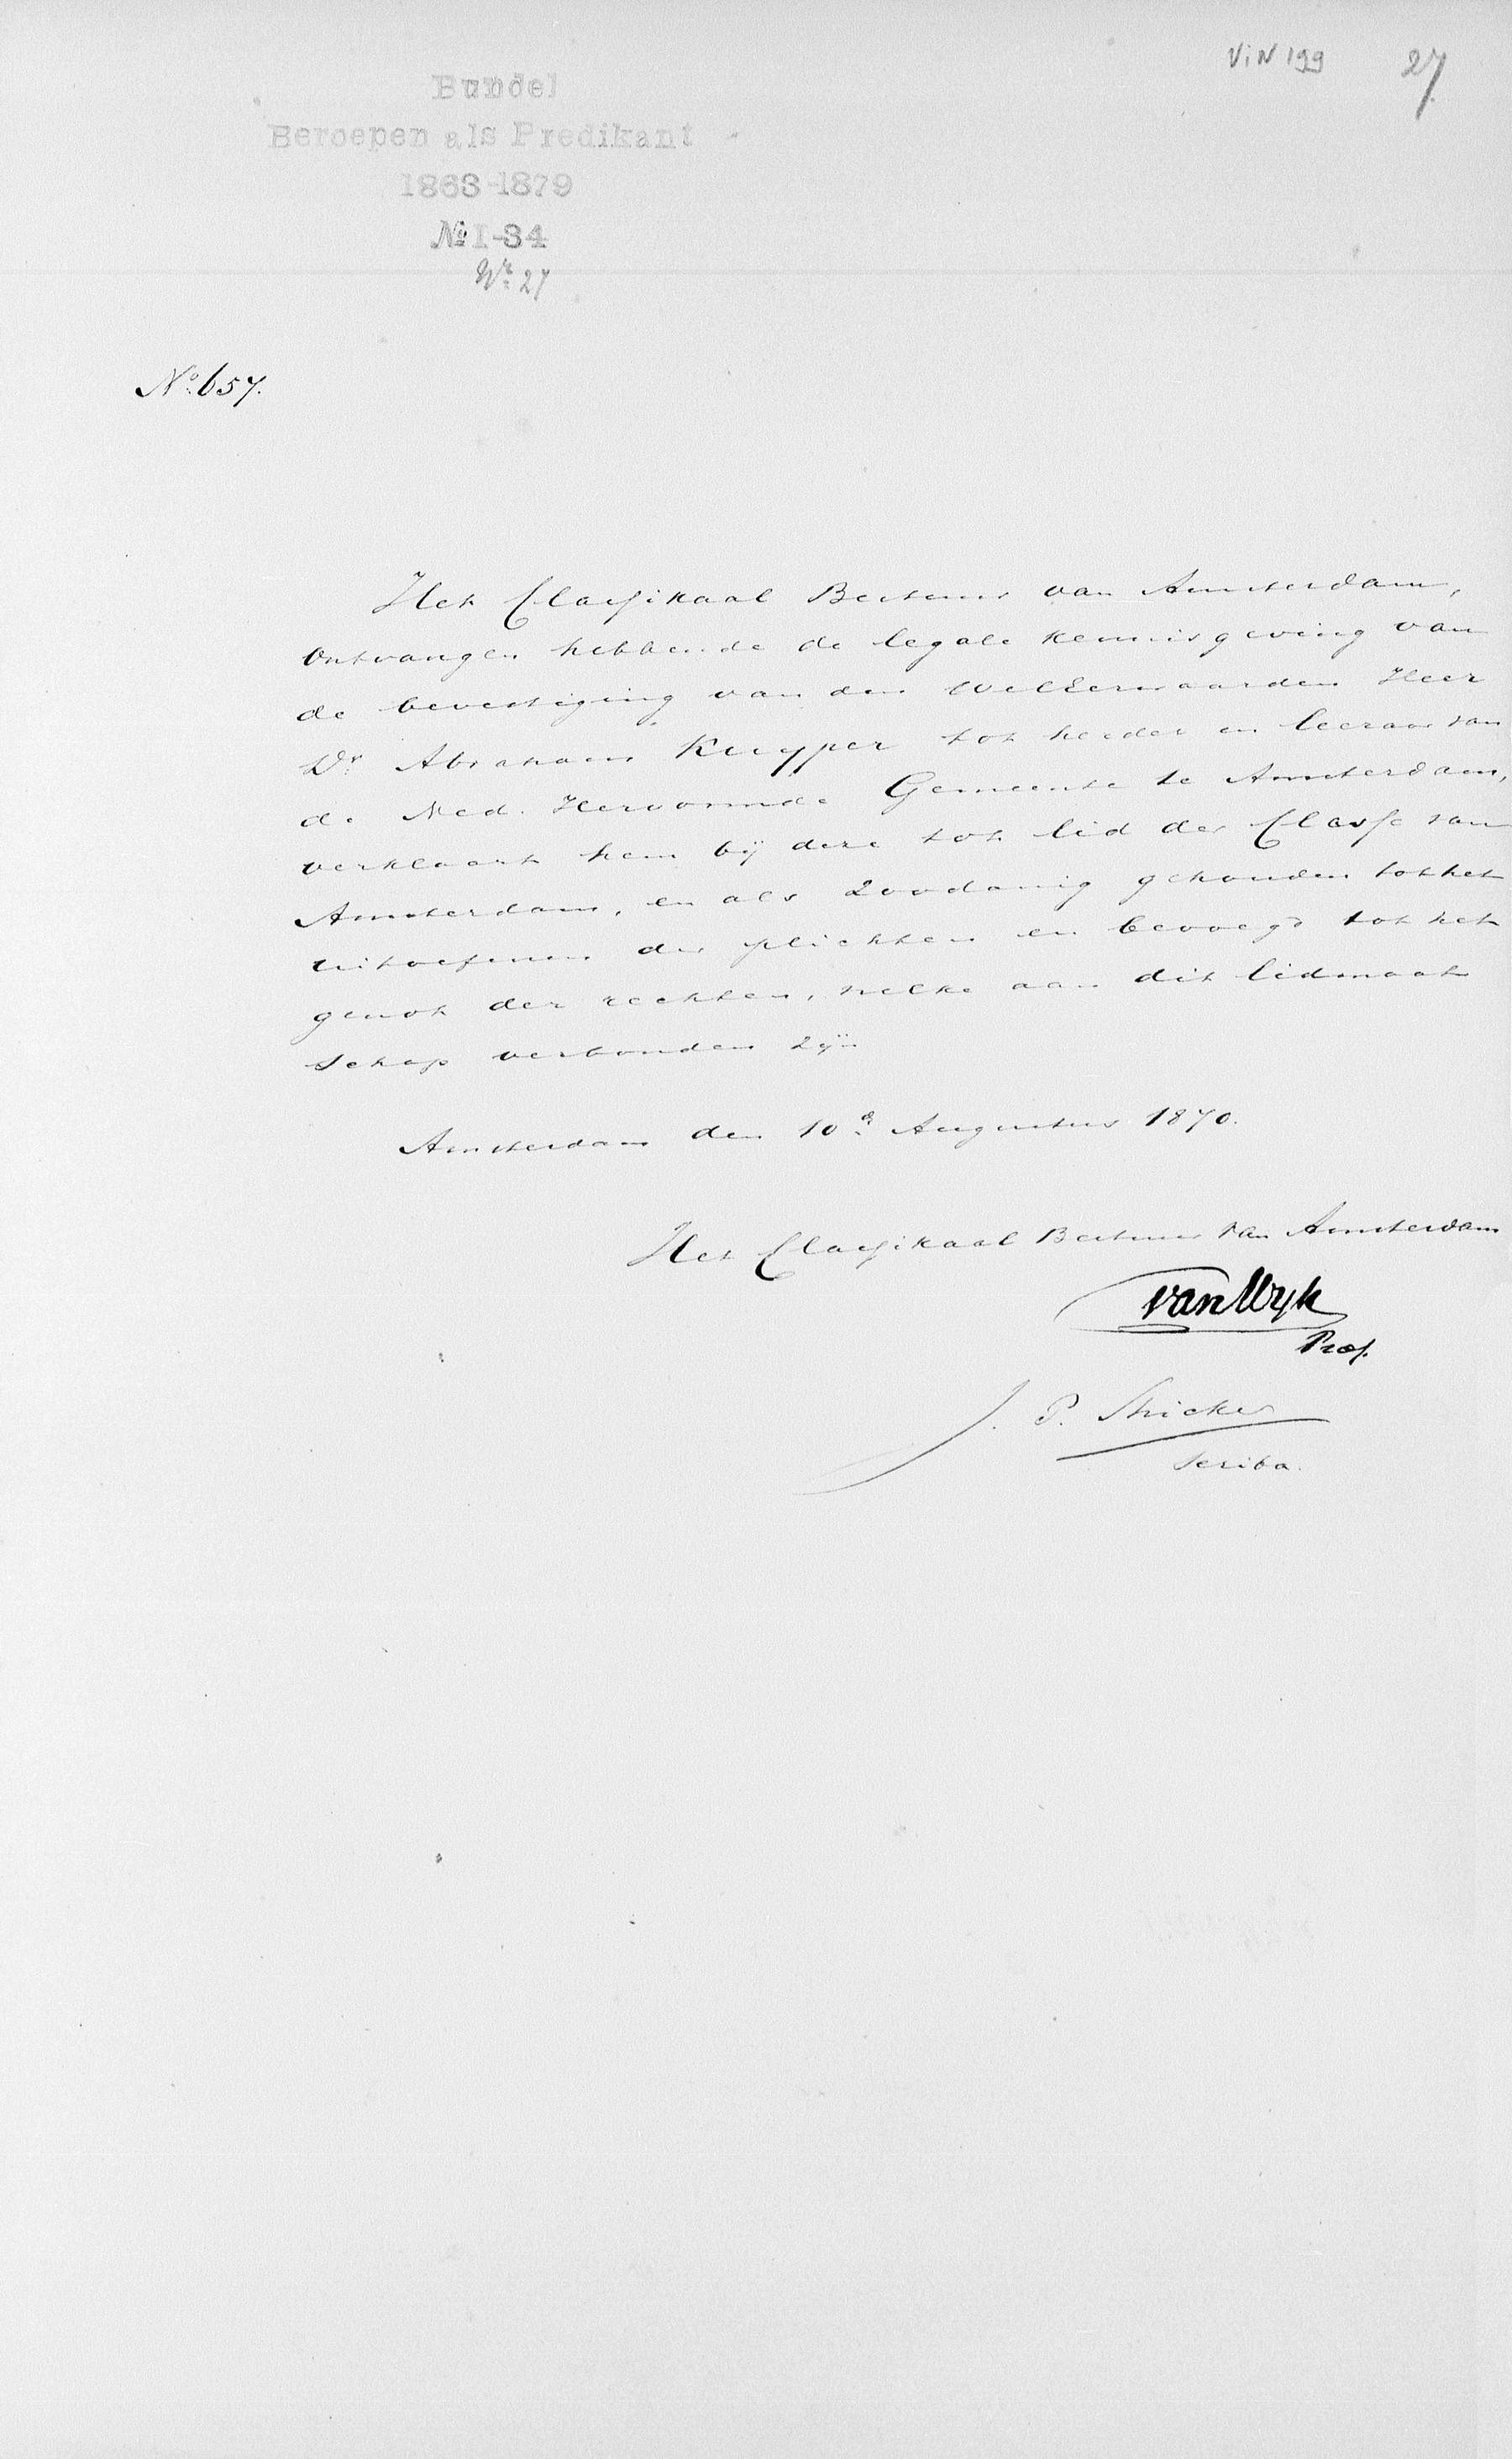 ViN 199 27
Bundel
Beroepen als Predikant
1863-1879
№ I-34
Nr. 27
No. 657.
Het Classikaal Bestuur van Amsterdam,
ontvangen hebbende de legale kennisgeving van
de bevestiging van den WelEerwaarden Heer
Dr. Abraham Kuyper tot herder en leeraar van
de Ned. Hervormde Gemeente te Amsterdam,
verklaart hem bij deze tot lid der Classe van
Amsterdam, en als zoodanig gehouden tot het
uitoefenen der plichten en bevoegd tot het
genot der rechten, welke aan dit lidmaat
schap verbonden zijn
Amsterdam den 10e Augustus 1870.
Het Classikaal Bestuur van Amsterdam
van Wyk
Praes.
J. P. Stricker
Scriba.